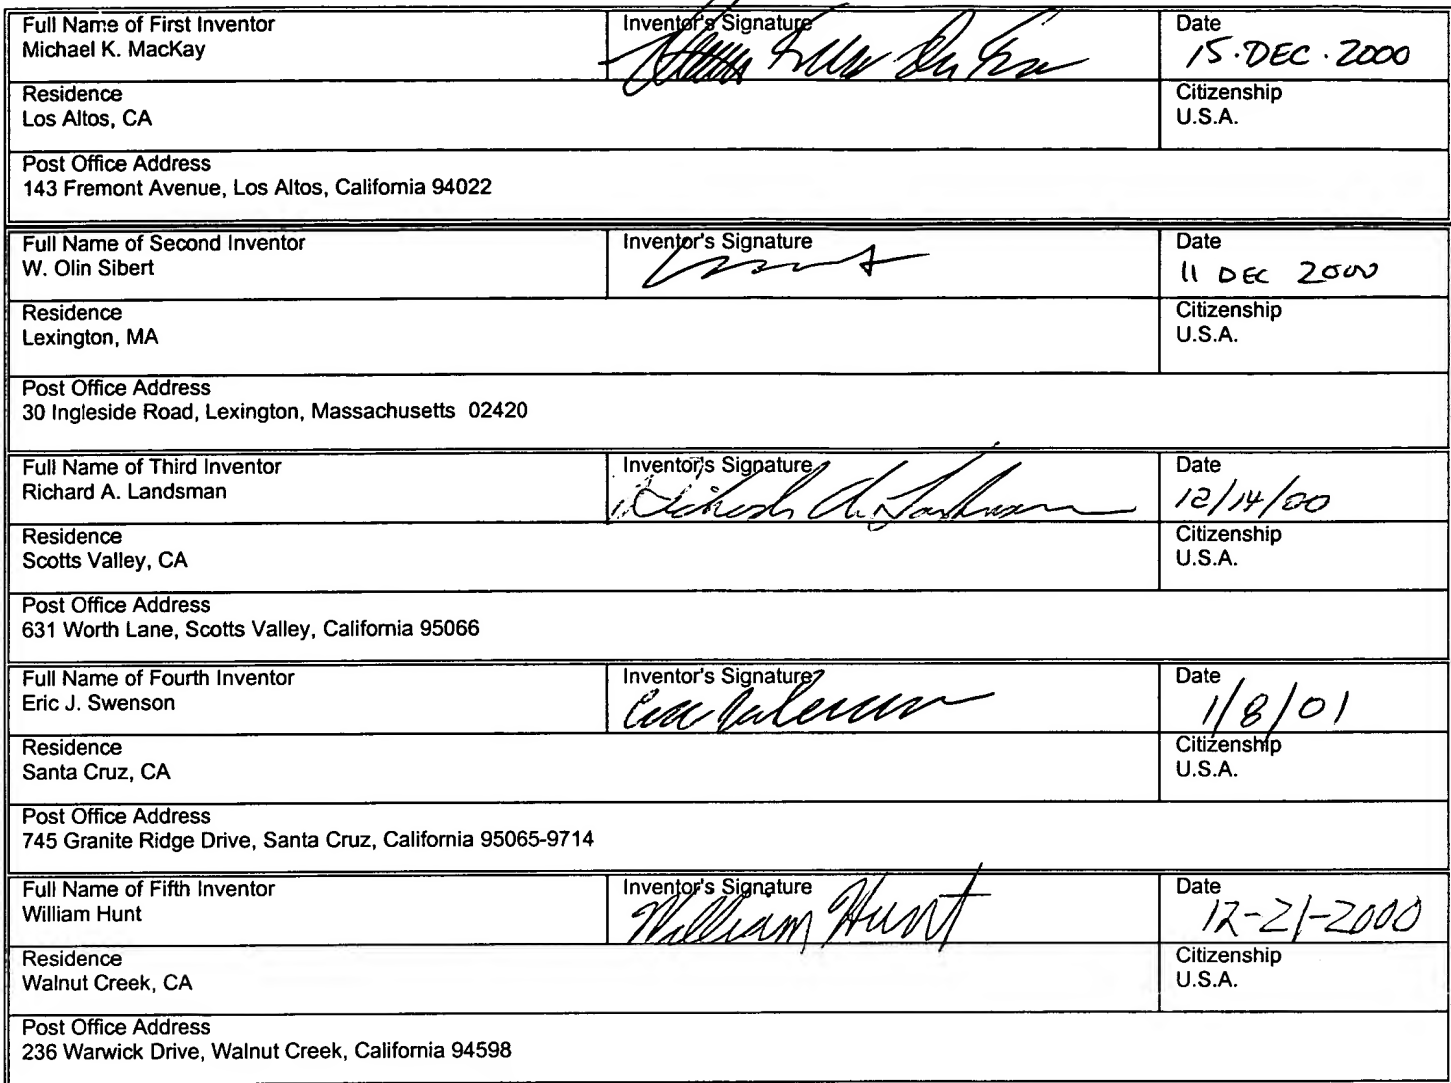 Full Name of First Inventor
Michael K. MacKay
Inventor's Signature
Date
15·DEC·2000
Residence
Los Altos, CA
Citizenship
U.S.A.
Post Office Address
143 Fremont Avenue, Los Altos, California 94022
Full Name of Second Inventor
W. Olin Sibert
Inventor's Signature
Date
11 DEC 2000
Residence
Lexington, MA
Citizenship
U.S.A.
Post Office Address
30 Ingleside Road, Lexington, Massachusetts 02420
Full Name of Third Inventor
Richard A. Landsman
Inventor's Signature
Richard A. Landsman
Date
12/14/00
Residence
Scotts Valley, CA
Citizenship
U.S.A.
Post Office Address
631 Worth Lane, Scotts Valley, California 95066
Full Name of Fourth Inventor
Eric J. Swenson
Inventor's Signature
Date
1/8/01
Residence
Santa Cruz, CA
Citizenship
U.S.A.
Post Office Address
745 Granite Ridge Drive, Santa Cruz, California 95065-9714
Full Name of Fifth Inventor
William Hunt
Inventor's Signature
William Hunt
Date
12-21-2000
Residence
Walnut Creek, CA
Citizenship
U.S.A.
Post Office Address
236 Warwick Drive, Walnut Creek, California 94598